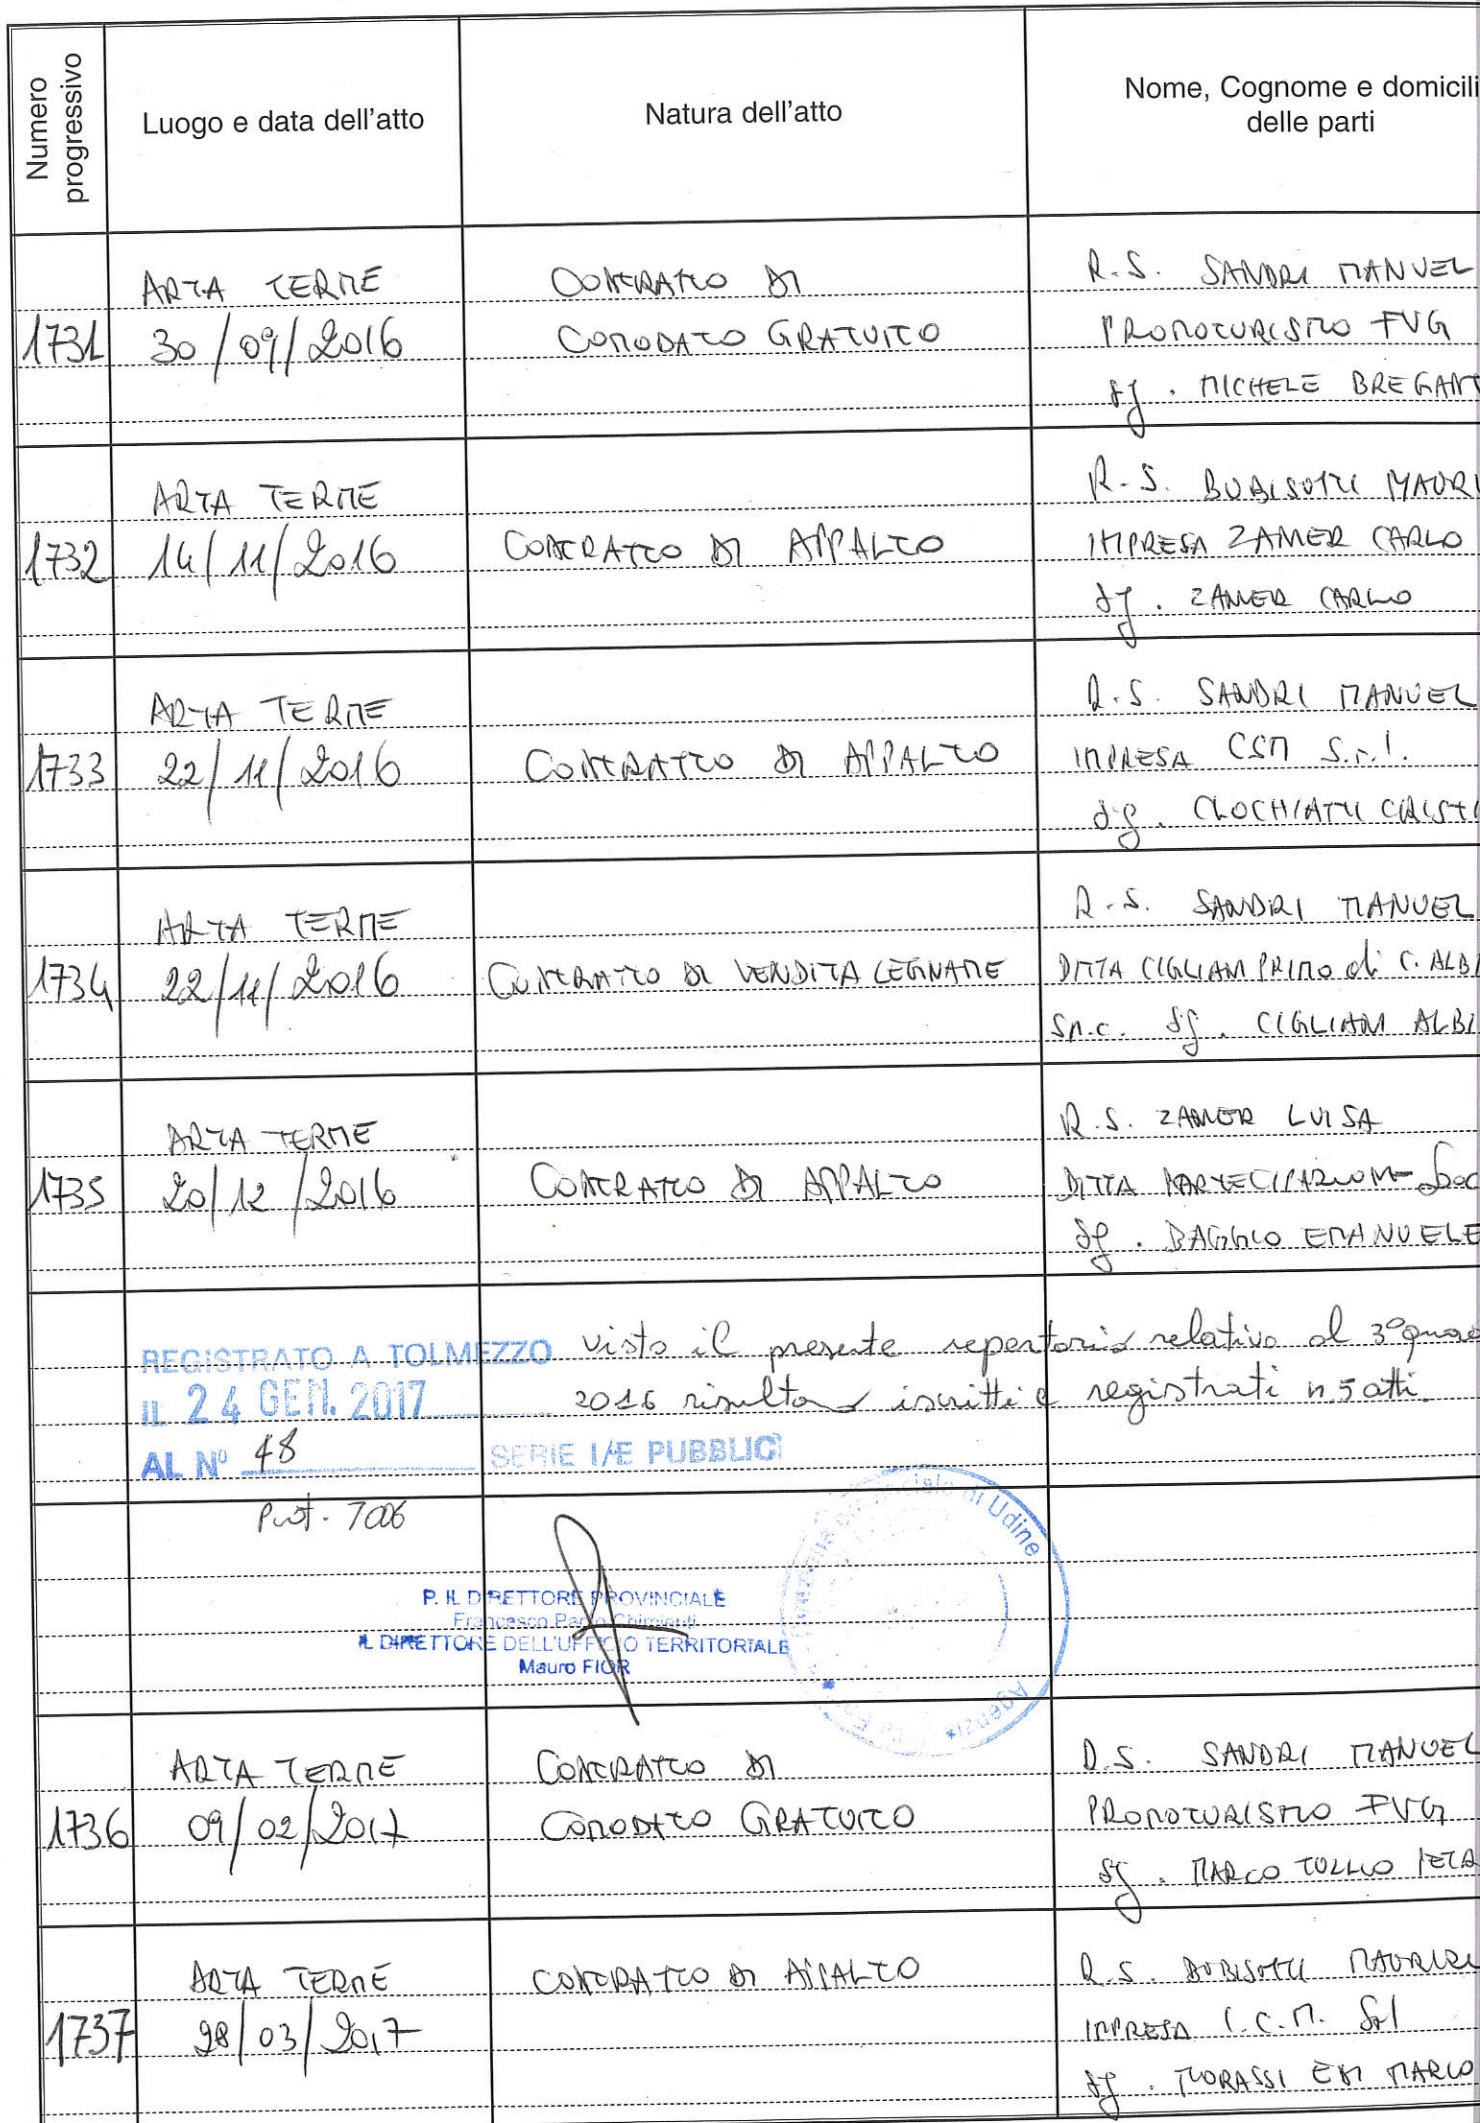 Numero progressivo
Luogo e data dell'atto
Natura dell'atto
Nome, Cognome e domicili
delle parti
1731
ARTA TERME
30/09/2016
CONTRATTO DI
COMODATO GRATUITO
R.S. SANDRI MANUEL
PROMOTURISMO FVG
sg. MICHELE BREGANT
1732
ARTA TERME
14/11/2016
CONTRATTO DI APPALTO
R.S. BUBISUTTI MAURI
IMPRESA ZAMER CARLO
sg. ZAMER CARLO
1733
ARTA TERME
22/11/2016
CONTRATTO DI APPALTO
R.S. SANDRI MANUEL
IMPRESA CSM S.r.l.
sg. CLOCHIATTI CRISTI
1734
ARTA TERME
22/11/2016
CONTRATTO DI VENDITA LEGNAME
R.S. SANDRI MANUEL
DITTA CIGLIANI PRIMO di C. ALBI
sn.c. sg. CIGLIANI ALBI
1735
ARTA TERME
20/12/2016
CONTRATTO DI APPALTO
R.S. ZAMER LUISA
DITTA PARTECIPAZIONI Soc
sg. BAGGIO EMANUELE
REGISTRATO A TOLMEZZO
IL 24 GEN. 2017
AL N° 48 SERIE I/E PUBBLICI
visto il presente repertorio relativo al 3° quad
2016 risultano iscritti e registrati n. 5 atti.
Prot. 7006
P. IL DIRETTORE PROVINCIALE
Francesco Paolo Chimienti
IL DIRETTORE DELL'UFFICIO TERRITORIALE
Mauro FIOR
Provinciale di Udine
Agenzia
1736
ARTA TERME
09/02/2017
CONTRATTO DI
COMODATO GRATUITO
R.S. SANDRI MANUEL
PROMOTURISMO FVG
sg. MARCO TULLIO PETR
1737
ARTA TERME
28/03/2017
CONTRATTO DI APPALTO
R.S. BUBISUTTI MAURIZI
IMPRESA I.C.M. Srl
sg. MORASSI MARCO